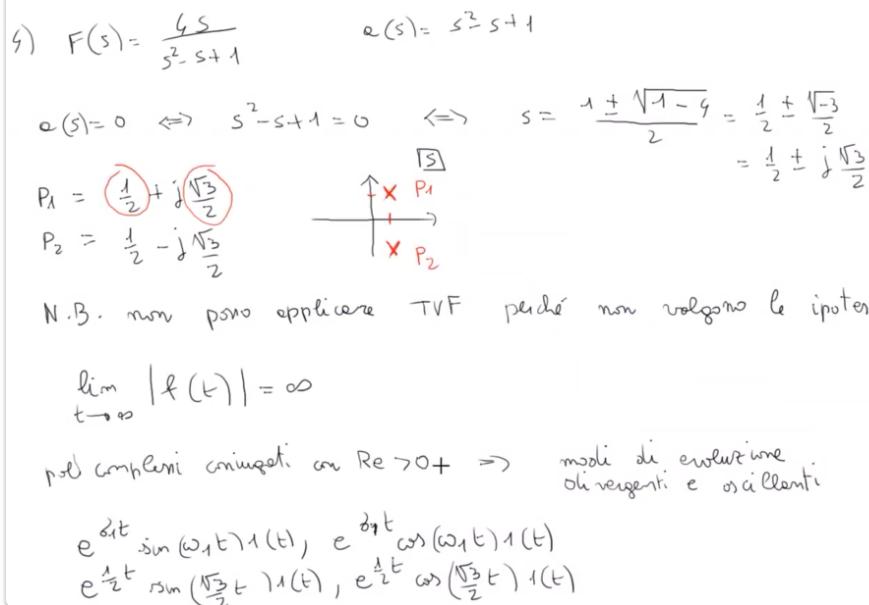 4) F(s) = 4s / (s² - s + 1)    a(s) = s² - s + 1
a(s) = 0 <=> s² - s + 1 = 0 <=> s = (1 ± √(1 - 4)) / 2 = 1/2 ± √-3 / 2
= 1/2 ± j √3/2
P1 = 1/2 + j √3/2
P2 = 1/2 - j √3/2
s
P1
P2
N.B. non posso applicare TVF perché non valgono le ipotesi
lim t→∞ |f(t)| = ∞
poli complessi coniugati con Re > 0 + => modi di evoluzione
divergenti e oscillanti
e^(σ1 t) sin(ω1 t) 1(t), e^(σ1 t) cos(ω1 t) 1(t)
e^(1/2 t) sin(√3/2 t) 1(t), e^(1/2 t) cos(√3/2 t) 1(t)